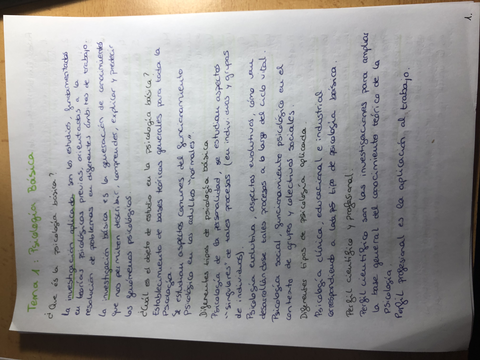 Tema 1: Psicología Básica
¿Que es la psicología básica?
La investigación aplicada son los estudios, fundamentados
en teorías psicológicas previas, orientados a la
resolución de problemas en diferentes ámbitos de trabajo.
La investigación básica es la generación de conocimientos,
que nos permiten describir, comprender, explicar y predecir
los fenómenos psicológicos
¿Cuál es el objeto de estudio en la psicología básica?
Establecimiento de bases teóricas generales para toda la
psicología
Se estudian aspectos comunes del funcionamiento
Psicológico en los adultos "normales"
Diferentes tipos de psicología básica
Psicología de la personalidad, se estudian aspectos
"singulares" de tales procesos (en individuos y grupos
de individuos)
Psicología evolutiva aspectos evolutivos, como van
desarrollándose tales procesos a lo largo del ciclo vital.
Psicología social funcionamiento psicológico en el
contexto de grupos y colectivos sociales
Diferentes tipos de psicología aplicada
Psicología clínica educacional e industrial
correspondiendo a cada tipo de psicología básica.
Perfil científico y profesional.
Perfil científico son las investigaciones para ampliar
la base general del conocimiento teórico de la
psicología
Perfil profesional es la aplicación al trabajo.
1.